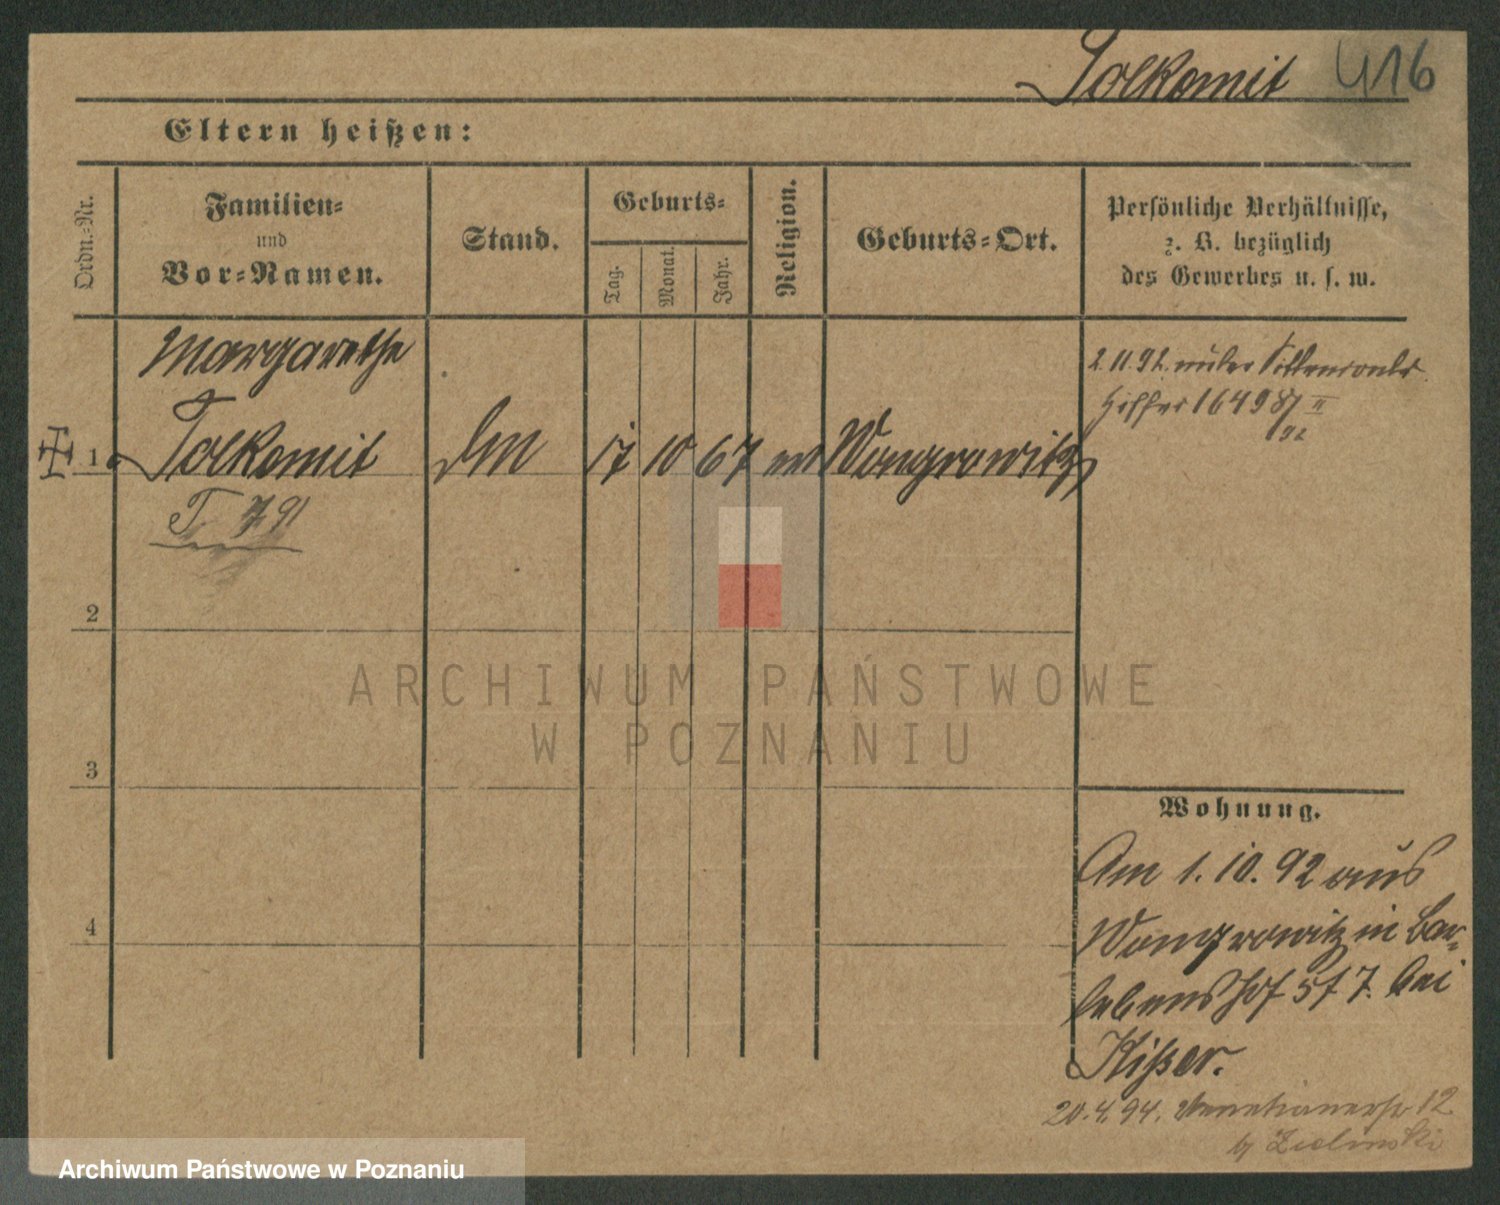 Tolkomit 416
Eltern heißen:
Ordn.-Nr.
Familien-
und
Vor-Namen.
Stand.
Geburts-
Tag.
Monat.
Jahr.
Religion.
Geburts-Ort.
Persönliche Verhältnisse,
z. B. bezüglich
des Gewerbes u. s. w.
Margarethe
1 Tolkomit 17 10 67 Wongrowitz
T 791
2. 11. 92. unter Sittenkontr.
16498/ II
92
2
3
4
ARCHIWUM PAŃSTWOWE
W POZNANIU
Wohnung.
Am 1. 10. 92 aus
Wongrowitz in Bar-
lebenshof 5f 7. bei
Kißer.
20. 4. 94. Venetianerstr 12
b/ Zielinski
Archiwum Państwowe w Poznaniu